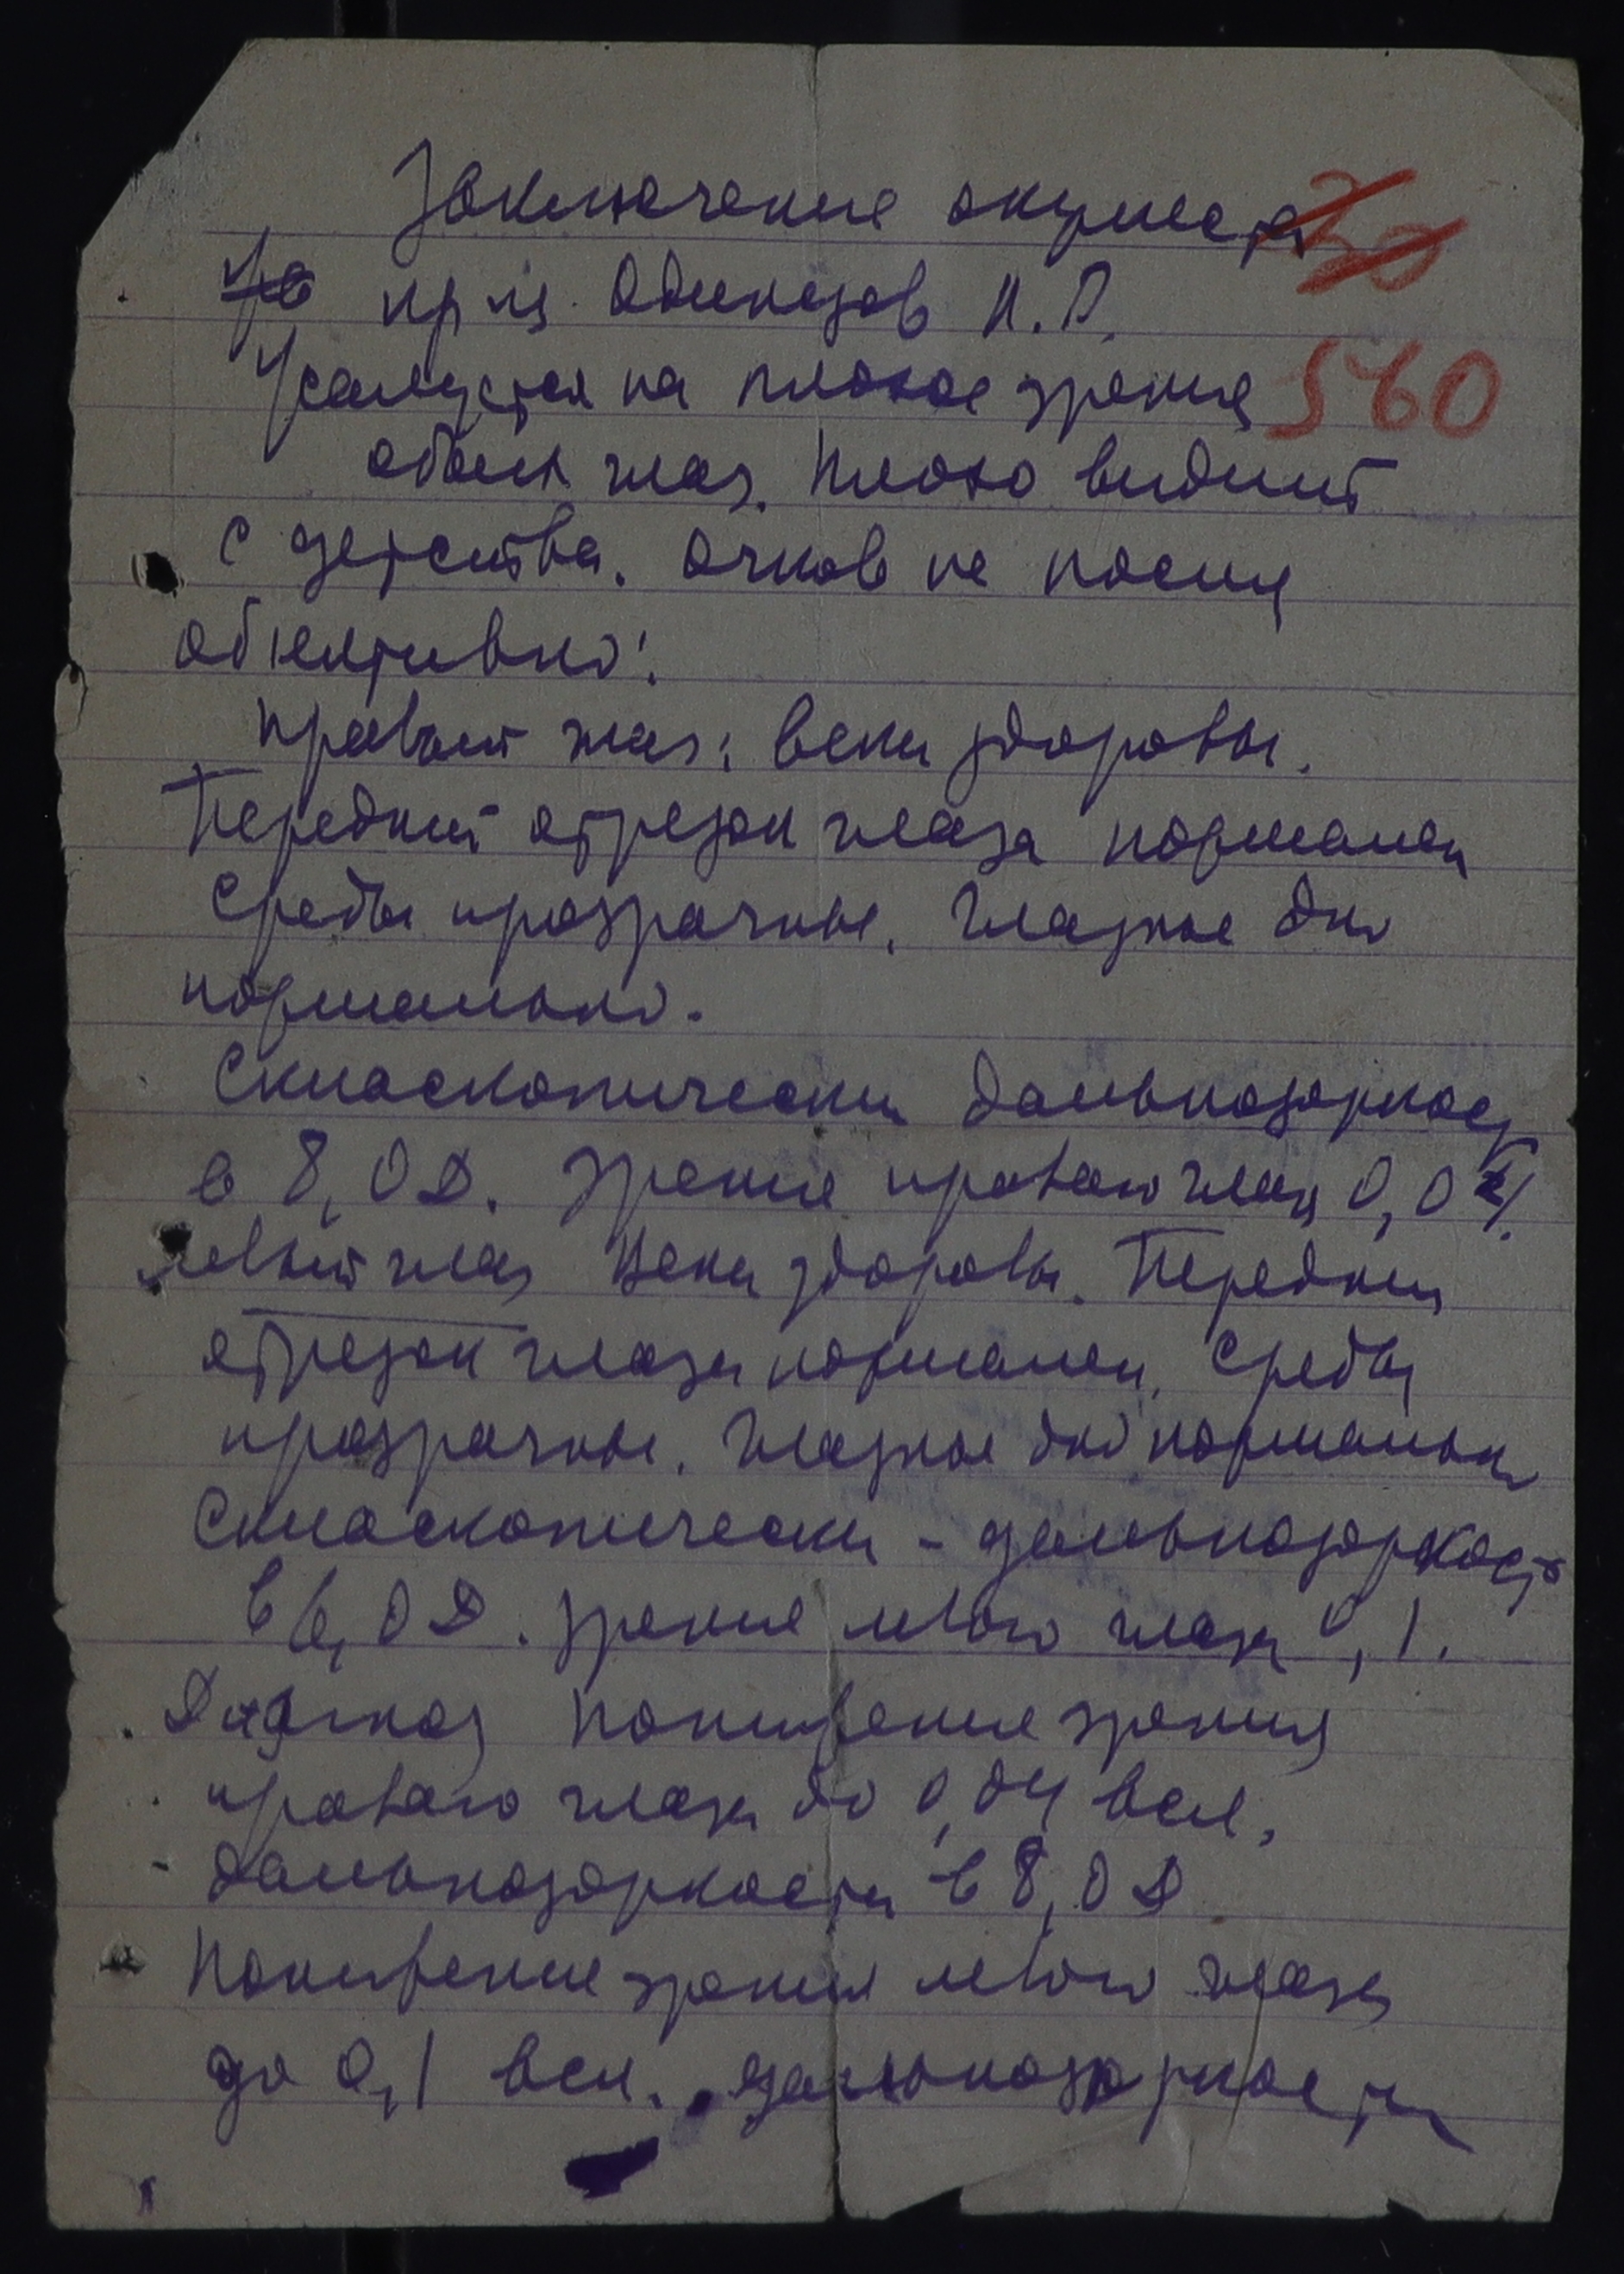 Заключение окулиста
30
пр-ц Одинозов И. Г.
560
Жалуется на плохое зрение
обоих глаз. Плохо видит
с детства. Очков не носил
Объективно:
Правый глаз: веки здоровы.
Передний отрезок глаза нормален
Среды прозрачные. Глазное дно
нормально.
Скиаскопически дальнозоркость
в 8,0 D. Зрение правого глаза 0,04.
Левый глаз Веки здоровы. Передний
отрезок глаза нормален, среды
прозрачные. Глазное дно нормально
Скиаскопически - дальнозоркость
в 6,0 D. Зрение левого глаза 0,1.
Диагноз Понижение зрения
правого глаза до 0,04 всл.
дальнозоркости в 8,0 D
Понижение зрения левого глаза
до 0,1 всл. дальнозоркости